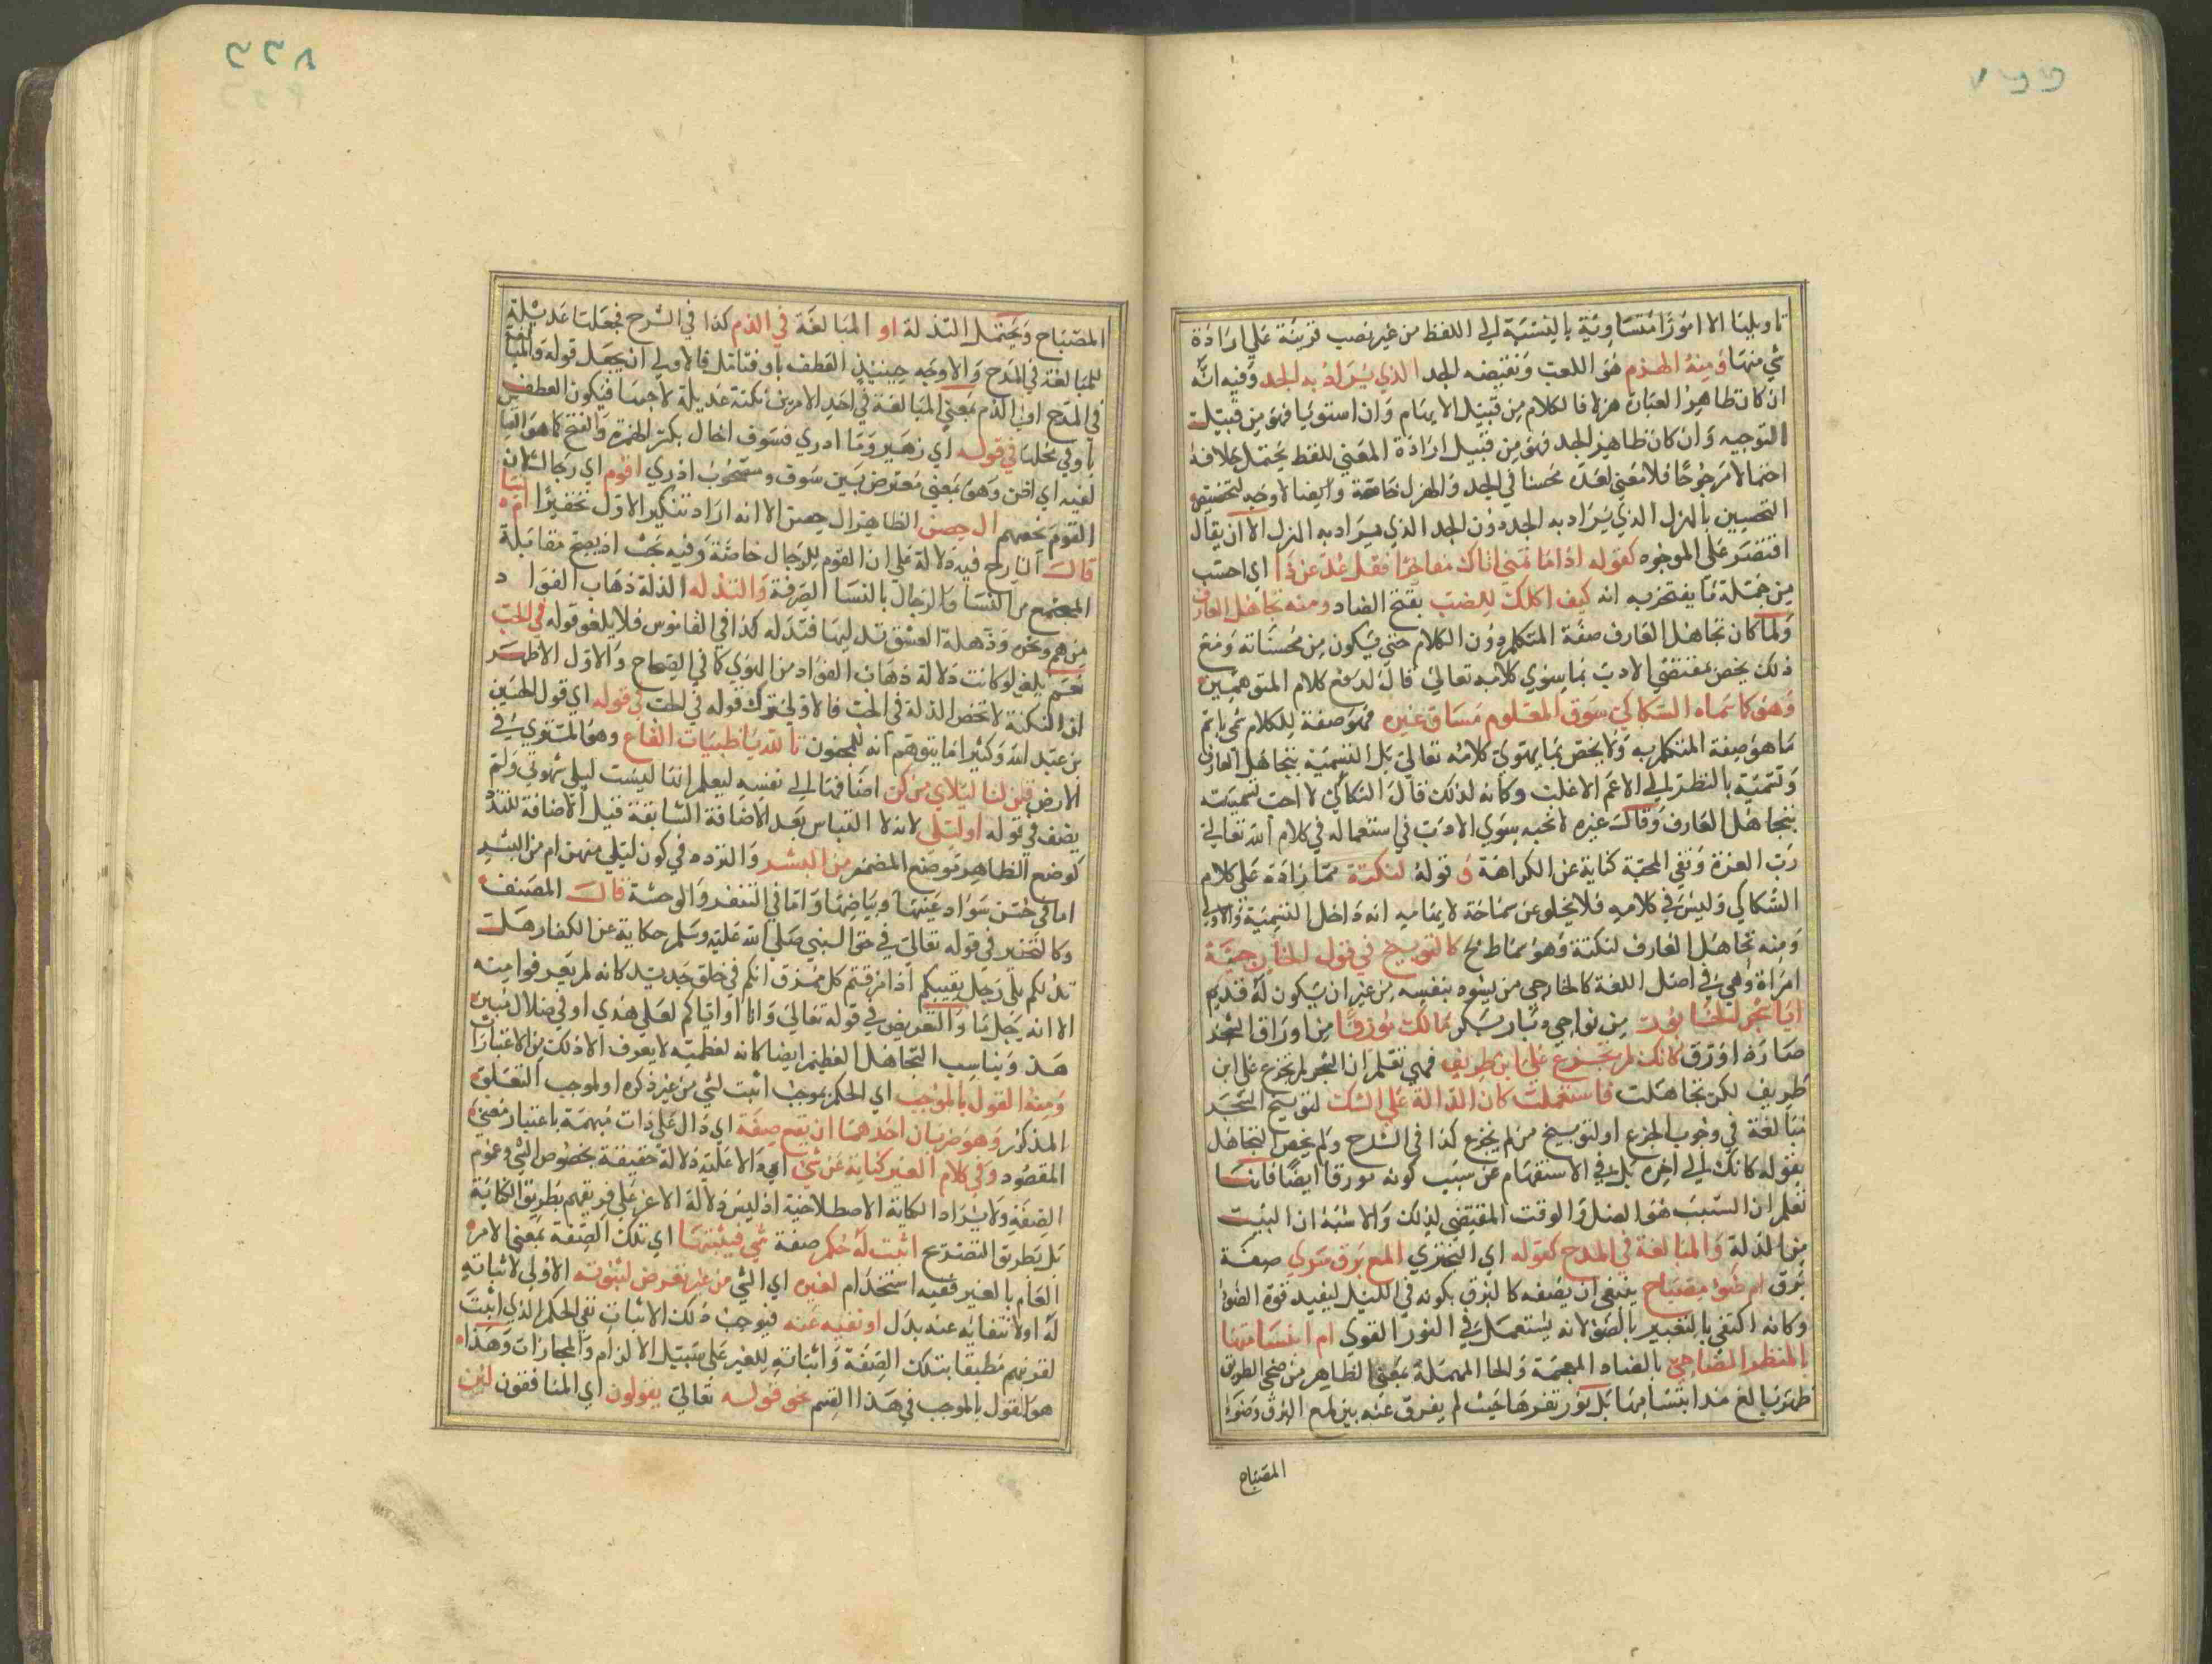 تاويلنا الا امورا متساوية بالنسبة الى اللفظ من غير نصب قرينة على ارادة
شي منها ومنه الهزم هو اللعب ونقيضه الجد الذي يراد به الجد وفيه انه
ان كان ظاهر العبارة هزلا فالكلام من قبيل الايهام وان استويا فهو من قبيل
التوجيه وان كان ظاهر الجد فهو من قبيل ارادة المعنى للفظ يحتمل بخلافه
احتمالا مرجوحا فلا معنى لعده محسنا في الجد والهزل خاصة وايضا لا وجه لتخصيص
التحسين بالهزل الذي يراد به الجد دون الجد الذي يراد به الهزل الا ان يقال
اقتصر على الموجوه كقوله اذا ما تميمي اتاك مفاخرا فقل عد عن ذا اي احتسب
من جملة ما يفتخر به انه كيف اكلك للضب بفتح الضاد ومنه تجاهل العارف
ولما كان تجاهل العارف صفة المتكلم دون الكلام حتى يكون من محسناته ومع
ذلك يخص بمقتضى الادب بما سوى كلامه تعالى قال لدفع كلام المتوهمين
وهو كما سماه السكاكي سوق المعلوم مساق غيره فهو صفة للكلام سمي باسم
ما هو صفة المتكلم به ولا يخص بما سوى كلامه تعالى بل التسمية بتجاهل العارف
وتسمية بالنظر الى الاعم الاغلب وكانه لذلك قال السكاكي لا احب تسميته
بتجاهل العارف وقال غيره لا نحبه سوى الادب في استعماله في كلام الله تعالى
رب العزة ونفي المحبة كناية عن الكراهة و قوله لنكتة مما زاده على كلام
السكاكي وليس في كلامه فلا يخلو عن مسامحة لايهاميه انه داخل التسمية والاولى
ومنه تجاهل العارف لنكتة وهو مماطح كالتوبيخ في قول الخارجية
امراة وهي في اصل اللغة كالخارجي من يسود بنفسه من غير ان يكون له قديم
ايا شجر الخابور من نواحي ديار بكر مالك مورقا من اوراق الشجر
صارة اورق كانك لم تجزع على ابن طريف فهي تعلم ان الشجر لم يجزع على ابن
طريف لكن تجاهلت فاستعملت كان الدالة على الشك لتوبيخ الشجر
مبالغة في وجوب الجزع او لتوبيخ من لم يجزع كذا في الشرح ولم يخص التجاهل
بقوله كانك الى اخره بل في الاستفهام عن سبب كونه مورقا ايضا فانها
تعلم ان السبب هو الفصل والوقت المقتضي لذلك والاشبه ان البيت
من الدلة والمبالغة في المدح كقوله اي البحتري المع برق سرى صفة
برق ام ضوء مصباح ينبغي ان يصفه كالبرق بكونه في الليل ليفيد قوة الضوء
وكانه اكتفى بالتعبير بالضوء لانه يستعمل في النور القوي ام ابتسامتها
بالمنظر الضاحي بالضاد المعجمة والحا المهملة بمعنى الظاهر من ضحى الطريق
ظهر بالغ مدا ابتسامها بل نور ثغرها حيث لم يفرق عنه بين لمع البرق وضوء
المصباح
المصباح ويحتمل التدله او المبالغة في الذم كذا في الشرح فجعلنا عديلة
للمبالغة في المدح والاوجه حينئذ العطف باو فتامل فالاولى ان يجعل قوله والمبالغة
في المدح او في الذم بمعنى المبالغة في احد الامرين نكتة عديلة لاجمها فيكون العطف
باو في محلها في قوله اي زهير وما ادري فسوف اخال بكسر الهمزة والفتح كما هو القياس
لغيه اي اظن وهو بمعنى معترض بين سوف ومصحوب ادري اقوم اي رجال ان
القوم يخصهم ال حصن الظاهر ال حصن الا انه اراد تنكير الاول تحقيرا ام نسا
قال الشارح فيه دلالة على ان القوم للرجال خاصة وفيه بحث اذ يصح مقابلة
المجتمع من النسا والرجال بالنسا الصرفة والتدله الدلة ذهاب الفواد
من هم ونحوه وذهله العشق تدليها فتدله كذا في القاموس فلا يلغو قوله في الحب
نعم يلغو لو كانت دلالة ذهاب الفواد من الهوى كما في الصحاح والاول الاظهر
لان النكتة لا تخص الدلة في الحب فالاولى ترك قوله في الحب في قوله اي قول الحسين
بن عبد الله وكثيرا ما يتوهم انه للمجنون تالله يا ظبيات القاع وهو المستوي في
الارض قلن لنا ليلاي منكن اضافها الى نفسه ليعلم انها ليست ليلى شهوتي ولم
يضف في قوله او ليلى لانه لا القياس بعد الاضافة السابقة قيل الاضافة للتلذذ
كوضع الظاهر موضع المضمر من البشر والتردد في كون ليلى منهن ام من البشر
اما في حسن سواد عينها وبياضها واما في التنفر والوحشة قال المصنف
وكالتحقير في قوله تعالى في حق النبي صلى الله عليه وسلم حكاية عن الكفار هل
ندلكم على رجل ينبيكم اذا مزقتم كل ممزق انكم في خلق جديد كانه لم يعرفوا منه
الا انه رجل ما والتعريض في قوله تعالى وانا او اياكم لعلى هدى او في ضلال مبين
هذ ويناسب التجاهل العظيم ايضا كانه لعظمته لا يعرف الا ذلك من الاعتبارات
ومنه القول بالموجب اي الحكم بموجب اثبت لشي من غير ذكره او لموجب التعلق
المذكور وهو ضربان احدهما ان تقع صفة اي دال على ذات مبهمة باعتبار معنى
المقصود وفي كلام الغير كناية عن شي اي دالا عليه دلالة حقيقة بخصوص الشي وعموم
الصفة ولا يراد الكناية الاصطلاحية اذ ليس دلالة الاعز على فريقهم بطريق الكناية
بل بطريق التصريح اثبت له حكم صفة شي فيثبتها اي تلك الصفة بمعنى الامر
العام بالغير ففيه استخدام لغيره اي الشي من غير تعرض لثبوته الاولى لاثباته
له او لانتفائه عنه بدل او نفيه عنه فيوجب ذلك الاثبات نفي الحكم الذي اثبت
لقربهم مطبقا بتلك الصفة واثباته للغير على سبيل الالزام والمجازات وهذا
هو القول بالموجب في هذا القسم نحو قوله تعالى يقولون اي المنافقون لئن